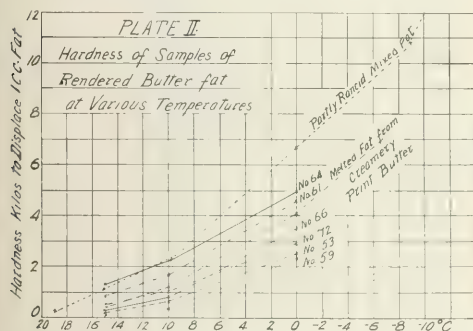 PLATE II.
Hardness of Samples of
Rendered Butter fat
at Various Temperatures
Hardness Kilos to Displace 1CC. Fat
12
10
8
6
4
2
0
Partly Rancid Mixed Fat.
No 64
No 61 Melted Fat from
Creamery
Print Butter
No 66
No 72
No 53
No 59
20 18 16 14 12 10 8 6 4 2 0 -2 -4 -6 -8 -10°C